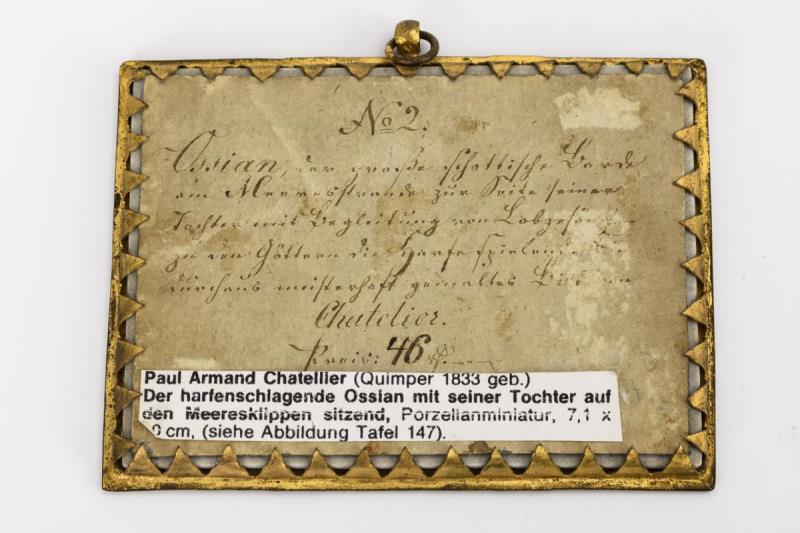 No 2.
Ossian, der große schottische Barde
am Meeresstrande zur Seite seiner
Tochter mit Begleitung von Lobgesängen
zu den Göttern die Harfe spielend
durchaus meisterhaft gemaltes Bild von
Chatelier.
Preis: 46
Paul Armand Chatellier (Quimper 1833 geb.)
Der harfenschlagende Ossian mit seiner Tochter auf
den Meeresklippen sitzend, Porzellanminiatur, 7,1 x
0 cm, (siehe Abbildung Tafel 147).